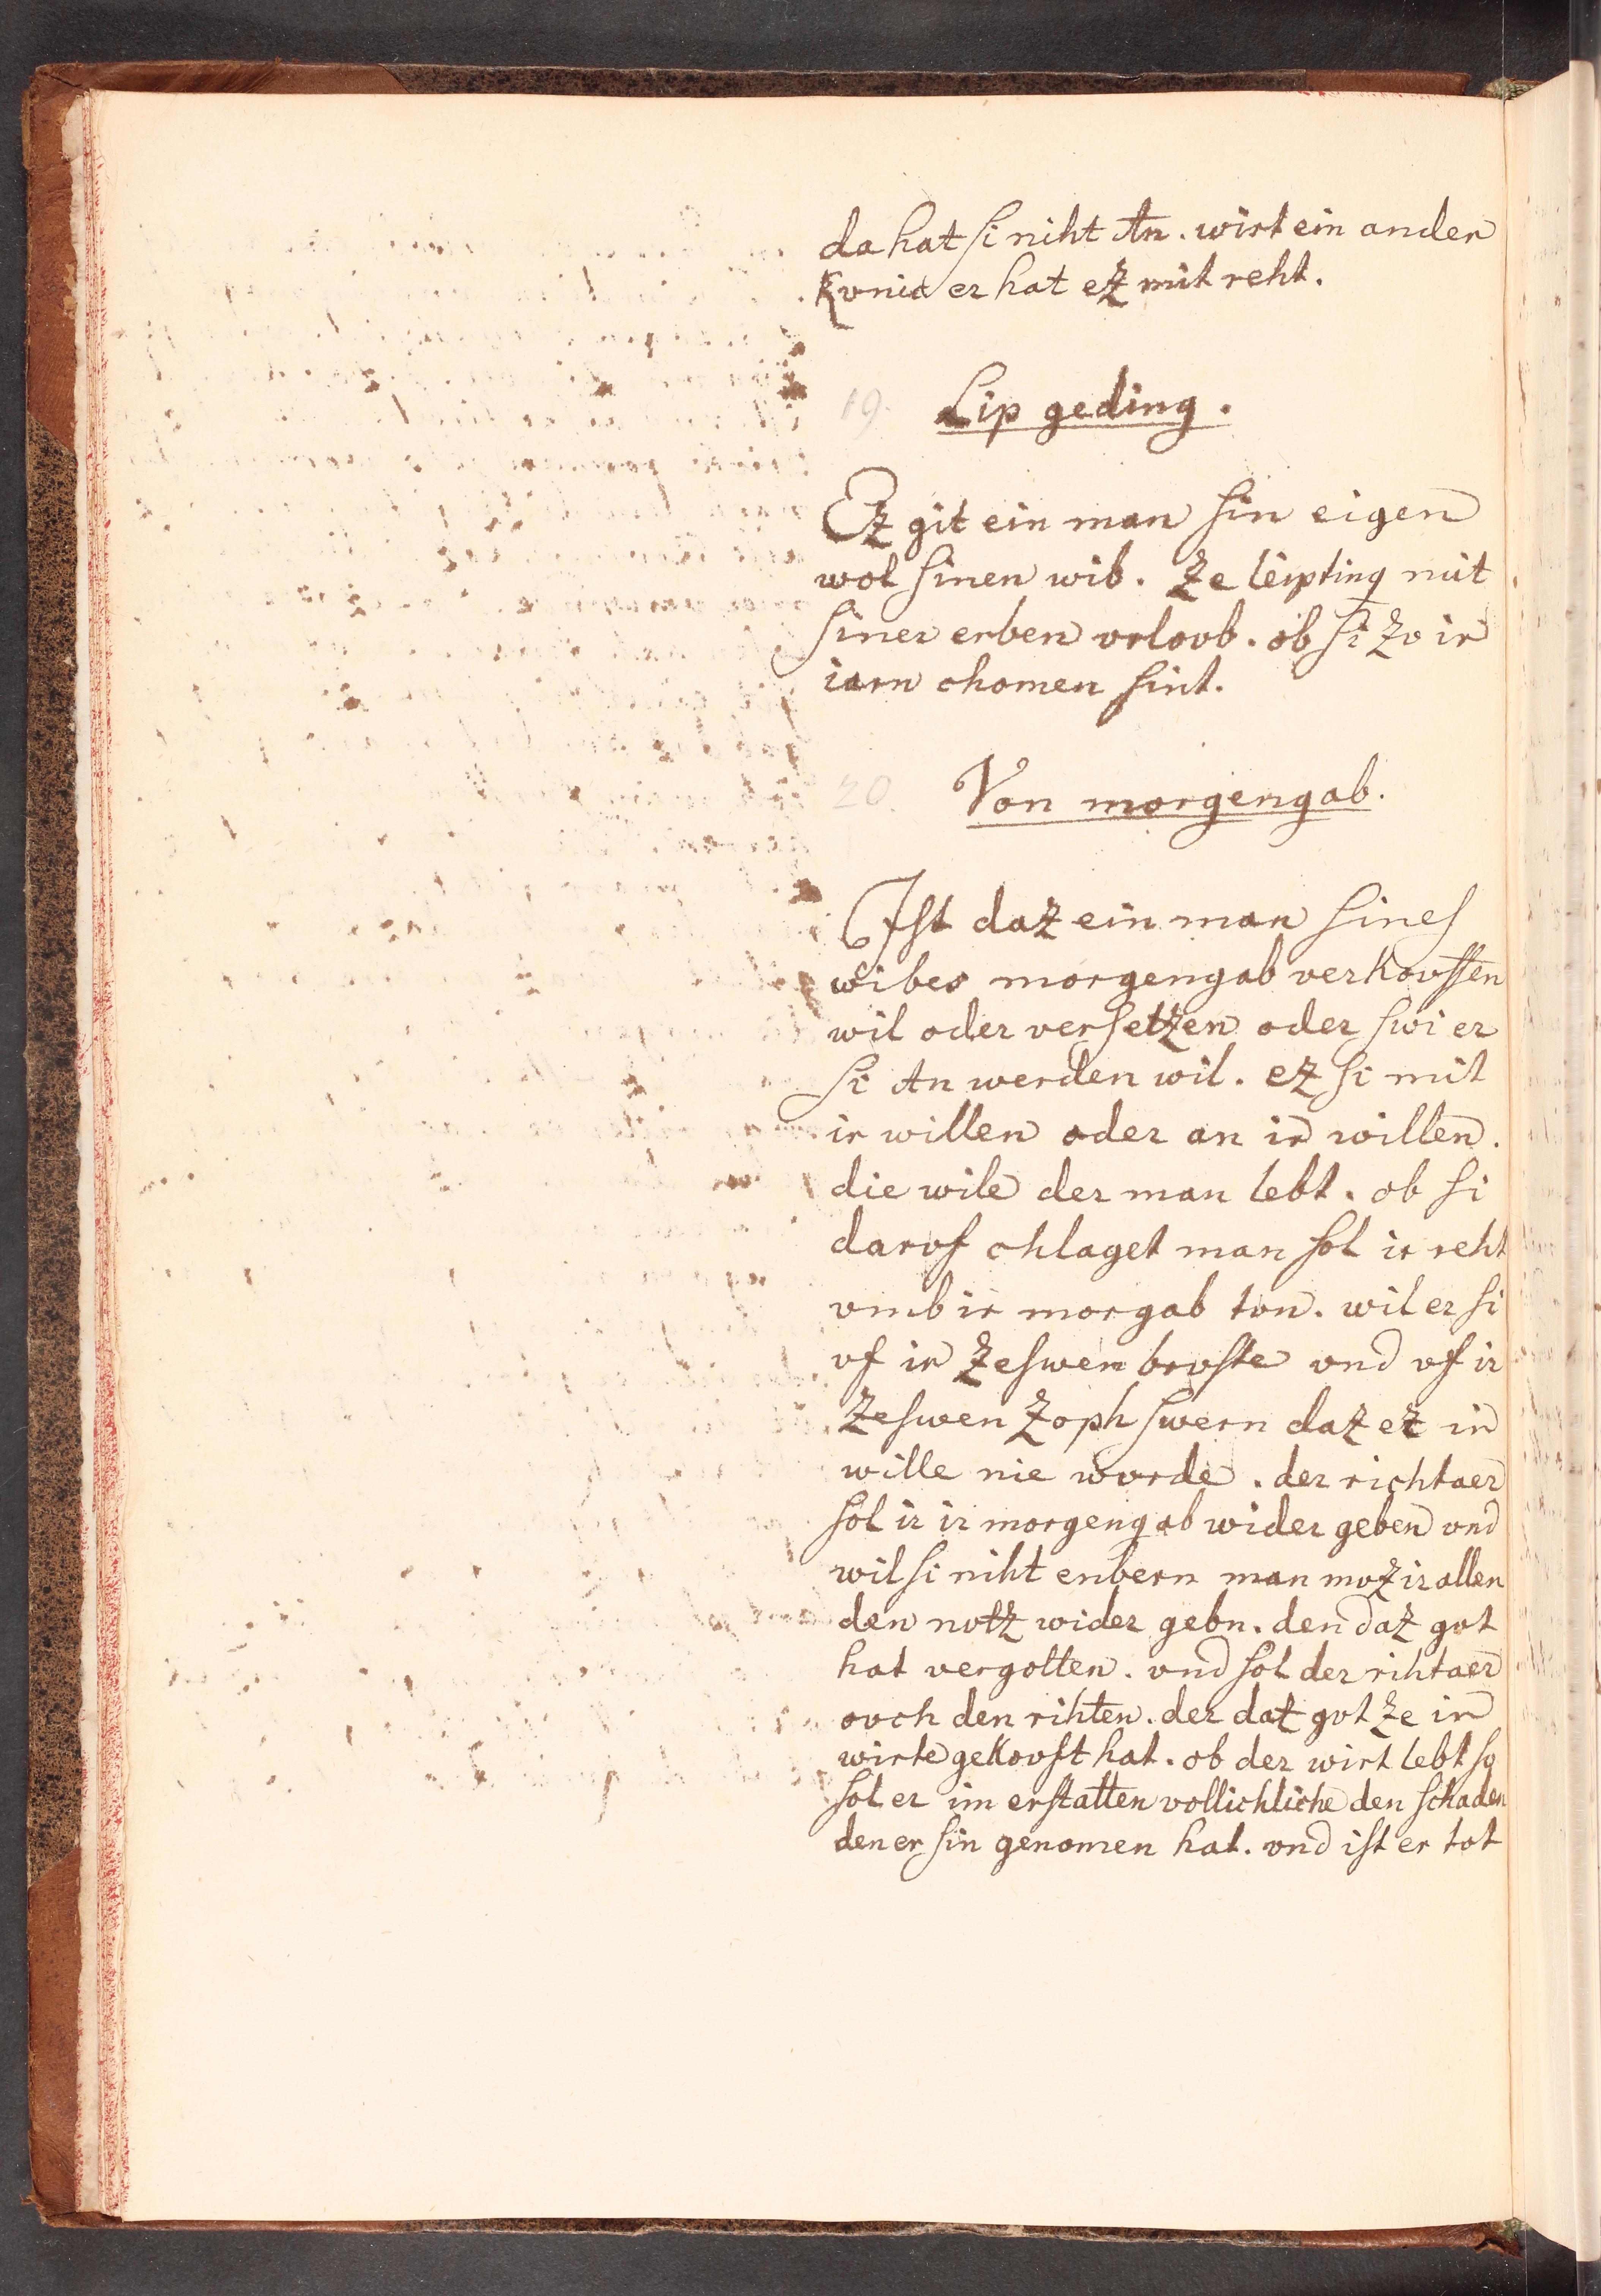 da hat si niht An. wirt ein ander
kvnic er hat ez mit reht.
19. Lip geding.
Ez git ein man sin eigen
wol sinen wib. Ze leipting mit
siner erben vrlovb. ob si Zv ir
iarn chomen sint.
20. Von morgengab.
Ist daz ein man sines
wibes morgengab verkovffen
wil oder versetzen oder swi er
si An werden wil. ez si mit
ir willen oder an ir willen.
die wile der man lebt. ob si
darvf chlaget man sol ir reht
vmb ir morgab tvn. wil er si
vf ir Zeswen brvste vnd vf ir
Zeswen Zoph swern daz ez ir
wille nie wvrde. der richtaer
sol ir ir morgengab wider geben vnd
wil si niht enbern man mvz ir allen
den nvtz wider gebn. den daz gvt
hat vergolten. vnd sol der rihtaer
ovch den rihten. der daz gvt Ze ir
wirte gekovft hat. ob der wirt lebt so
sol er im erstatten vollichliche den schaden
den er sin genomen hat. vnd ist er tot